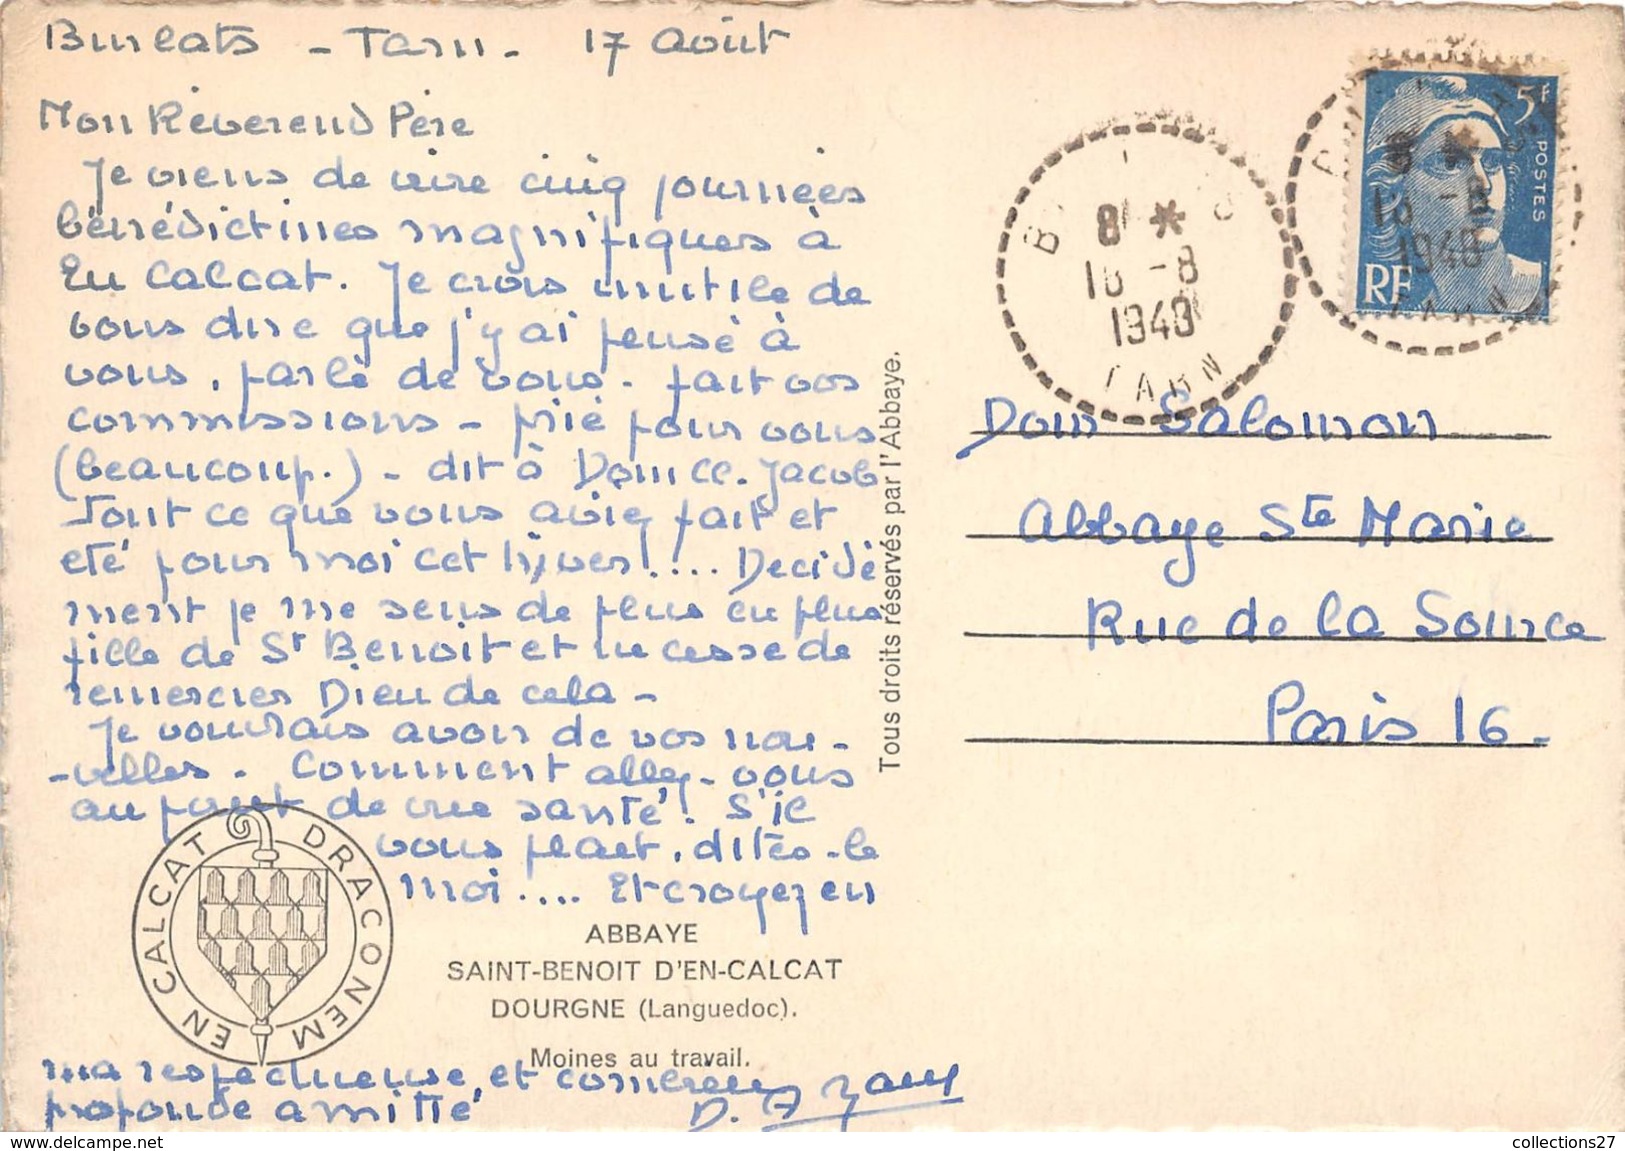 Burlats - Tarn - 17 Août
Mon Révérend Père
Je viens de vivre cinq journées
bénédictines magnifiques à
En Calcat. Je crois inutile de
vous dire que j'y ai pensé à
vous, parlé de vous - fait vos
commissions - prié pour vous
(beaucoup.) - dit à Dom Cl. Jacob
tout ce que vous aviez fait et
été pour moi cet hiver!.... Décidé
ment je me sens de plus en plus
fille de St Benoit et ne cesse de
remercier Dieu de cela -
Je voudrais avoir de vos nou-
-velles. Comment allez-vous
au point de vue santé! S'il
vous plait, dites-le
moi.... Et croyez en
ma respectueuse, et
profonde amitié
D.
EN CALCAT DRACONEM
ABBAYE
SAINT-BENOIT D'EN-CALCAT
DOURGNE (Languedoc).
Moines au travail.
Tous droits réservés par l'Abbaye.
8 *
18 -8
1948
TARN
5F
POSTES
RF
8 *
18 -8
1948
TARN
Dom Salomon
Abbaye Ste Marie
Rue de la Source
Paris 16-
collections27